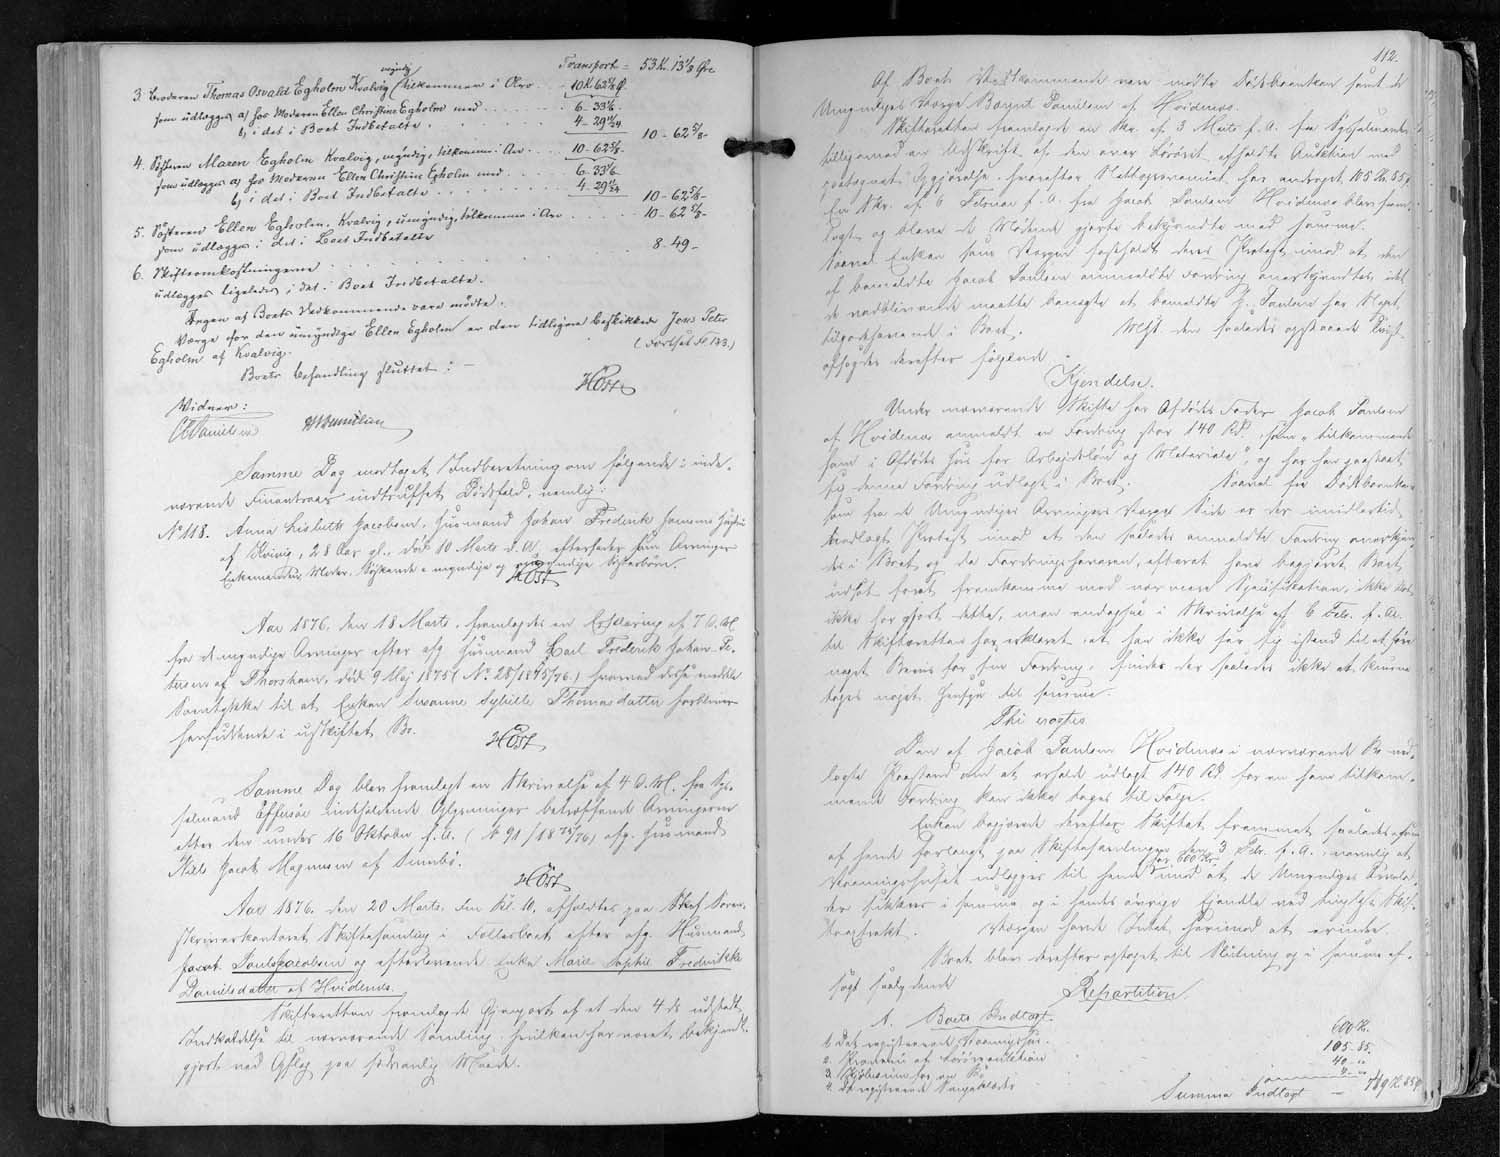 Transport = 53 K. 13 1/8 Øre
3. Broderen Thomas Osvald Egholm Kvalvig, myndig tilkommer i Arv . 10 K 62 5/8 Ø.
som udlægges a) hos Moderen Ellen Christine Egholm med . . . 6 - 33 1/6
b) i det i Boet Indbetalte . . . 4 - 29 11/24 10 - 62 5/8 -
4. Søsteren Maren Egholm Kvalvig, myndig, tilkommer i Arv . . . 10 - 62 5/8 -
som udlægges a) hos Moderen Ellen Christine Egholm med . . . 6 33 1/6
b) i det i Boet Indbetalte . . . 4 - 29 11/24 10 - 62 5/8 -
5. Søsteren Ellen Egholm, Kvalvig, umyndig, tilkommer i Arv . . . 10 - 62 5/8 -
som udlægges i det i Boet Indbetalte
6. Skifteomkostningerne . . . 8 - 49 -
udlægges ligeledes i det i Boet Indbetalte.
Ingen af Boets Vedkommende vare mødte.
Værge for den umyndige Ellen Egholm er den tidligere beskikkede Jens Peter
Egholm af Kvalvig. (Fortsat Fl 133.)
Boets Behandling sluttet: -
Høst
Vidner:
C. Danielsen
Samme Dag modtoges Indberetning om følgende i inde-
værende Finantsaar indtruffet Dødsfald, nemlig:
No 118. Anna Lisbeth Jacobsen, Husmand Johan Frederik Hansens Hustru
af Kvivig, 28 Aar gl., død 10 Marts d. A. efterlader som Arvinger
Enkemanden, Moder, Søskende, myndige og umyndige Søsterbørn.
Høst
Aar 1876, den 18 Marts, fremlagdes en Erklæring af 7 d. M.
fra de myndige Arvinger efter afg. Husmand Carl Frederik Johan Pe-
tersen af Thorshavn, død 9 Maj 1875 (No 25/1875/76.) hvorved disse meddele
Samtykke til at Enken Susanne Sybille Thomasdatter forbliver
hensiddende i uskiftet Bo.
Høst
Samme Dag blev fremlagt en Skrivelse af 4 d. M. fra Sys-
selmand Effersøe indeholdende Oplysninger betræffende Arvingerne
efter den under 16 Oktober f. A. (No 91/1875/76) afg. Husmand
Niels Jacob Magnussen af Sumbø.
Høst
Aar 1876, den 20 Marts, Em Kl. 10, afholdtes paa Skifs Soren-
skriverkontoret Skiftesamling i Fællesboet efter afg. Husmand
Jacob Pauls Jacobsen og efterlevende Enke Marie Sophie Fredrikke
Danielsdatter af Hvidenæs.
Skifteretten fremlagde Gjenpart af et den 4 ds udstedt
Indkaldelse til nærværende Samling, hvilken har været bekjendt-
gjort ved Opslag paa sædvanlig Maade.
112.
Af Boets Vedkommende vare mødte Dødsboenken samt de
Umyndiges Værge Bærent Danielsen af Hvidenæs.
Skifteretten fremlagde en Skr. af 3 Marts f. A. fra Sysselmanden
tilligemed en Udskrift af den over Løsøret afholdte Auktion med
paategnet Opgjørelse, hvorefter Nettoprovenuet har andraget 105 Kr. 85 Ø.
En Skr. af 6 Februar f. A. fra Jacob Paulsen Hvidenæs blev frem-
lagt og bleve de Mødende gjorte bekjendte med samme.
Saavel Enken som Værgen fastholdt deres Protest imod at den
af bemeldte Jacob Paulsen anmeldte Fordring anerkjendtes, idet
de vedblivende maatte benægte at bemeldte J. Paulsen har Noget
tilgodehavende i Boet. Efter den saaledes opstaaede Tvist
afsagdes derefter følgende
Kjendelse.
Under nærværende Skifte har Afdødes Fader Jacob Paulsen
af Hvidenæs anmeldt en Fordring stor 140 Rd. som "tilkommende
ham i Afdødes Hus for Arbejdsløn og Materiale", og har han paastaaet
sig denne Fordring udlagt i Boet. Saavel fra Dødsboenken
som fra de Umyndiges Arvingers Værges Side er der imidlertid
nedlagt Protest imod at den saaledes anmeldte Fordring anerkjen-
des i Boet og da Fordringshaveren, efterat have begjæret Boet
udsat for at fremkomme med nærmere Specifikation, ikke blot
ikke har gjort dette, men endogsaa i Skrivelse af 6 Febr. f. A.
til Skifteretten har erklæret, at han ikke ser sig istand til at føre
noget Bevis for sin Fordring, findes der saaledes ikke at kunne
tages noget Hensyn til samme.
Thi eragtes
Den af Jacob Paulsen Hvidenæs i nærværende Bo ned-
lagte Paastand om at erholde udlagt 140 Rd. for en ham tilkom-
mende Fordring kan ikke tages til Følge.
Enken begjærede derefter Skiftet fremmet saaledes som
af hende forlangt paa Skiftesamlingen den 3 Febr. f. A., nemlig at
Vaaningshuset udlægges til hende for 600 Kr. imod at de Umyndiges Arvelod-
der sikkres i samme og i hendes øvrige Ejendele ved tinglæst Skif-
teextrakt. Værgen havde Intet herimod at erindre.
Boet blev derefter optaget til Slutning og i samme af-
sagt saalydende
Repartition.
A. Boets Indtægt.
1. Det registrerede Vaaningshus . . . 600 Kr.
2. Provenu af Løsøreauktion 105 - 85.
3. 40 - "
4. Det registrerede
Summa Indtægt - 749 Kr. 85 Ø.